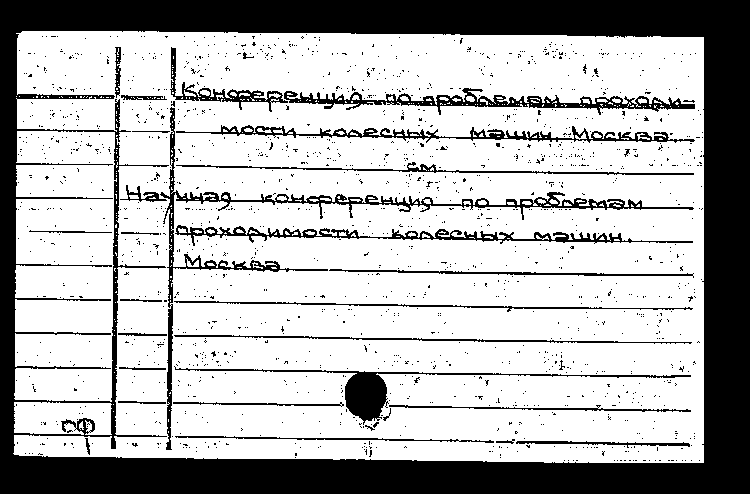 Конференция по проблемам проходи-
мости колесных машин. Москва.
см.
Научная конференция по проблемам
проходимости колесных машин.
Москва.